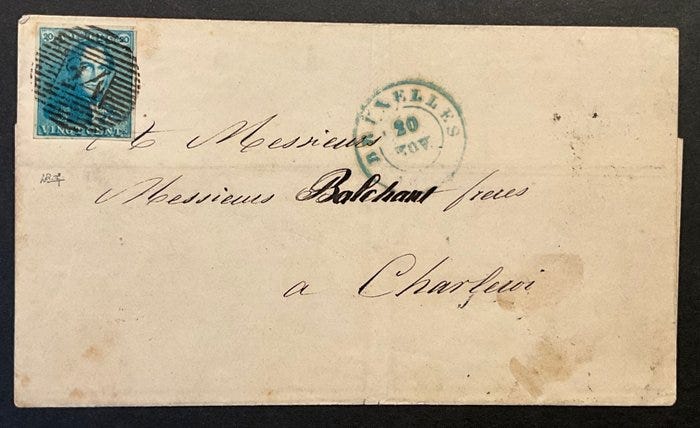 20 20
VINGT CENTS.
BRUXELLES
20
NOV.
A Messieurs
Messieurs Balchant freres
a Charleroi